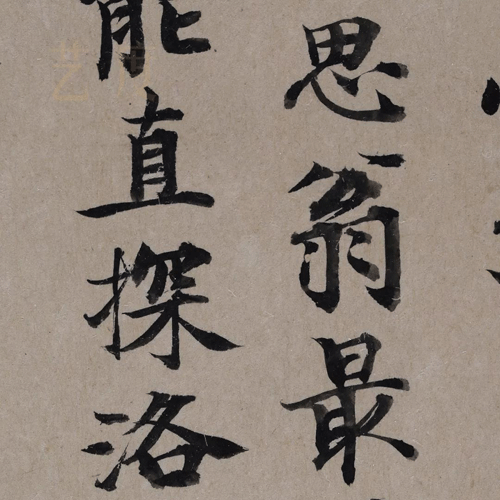 思翁最
能直探洛